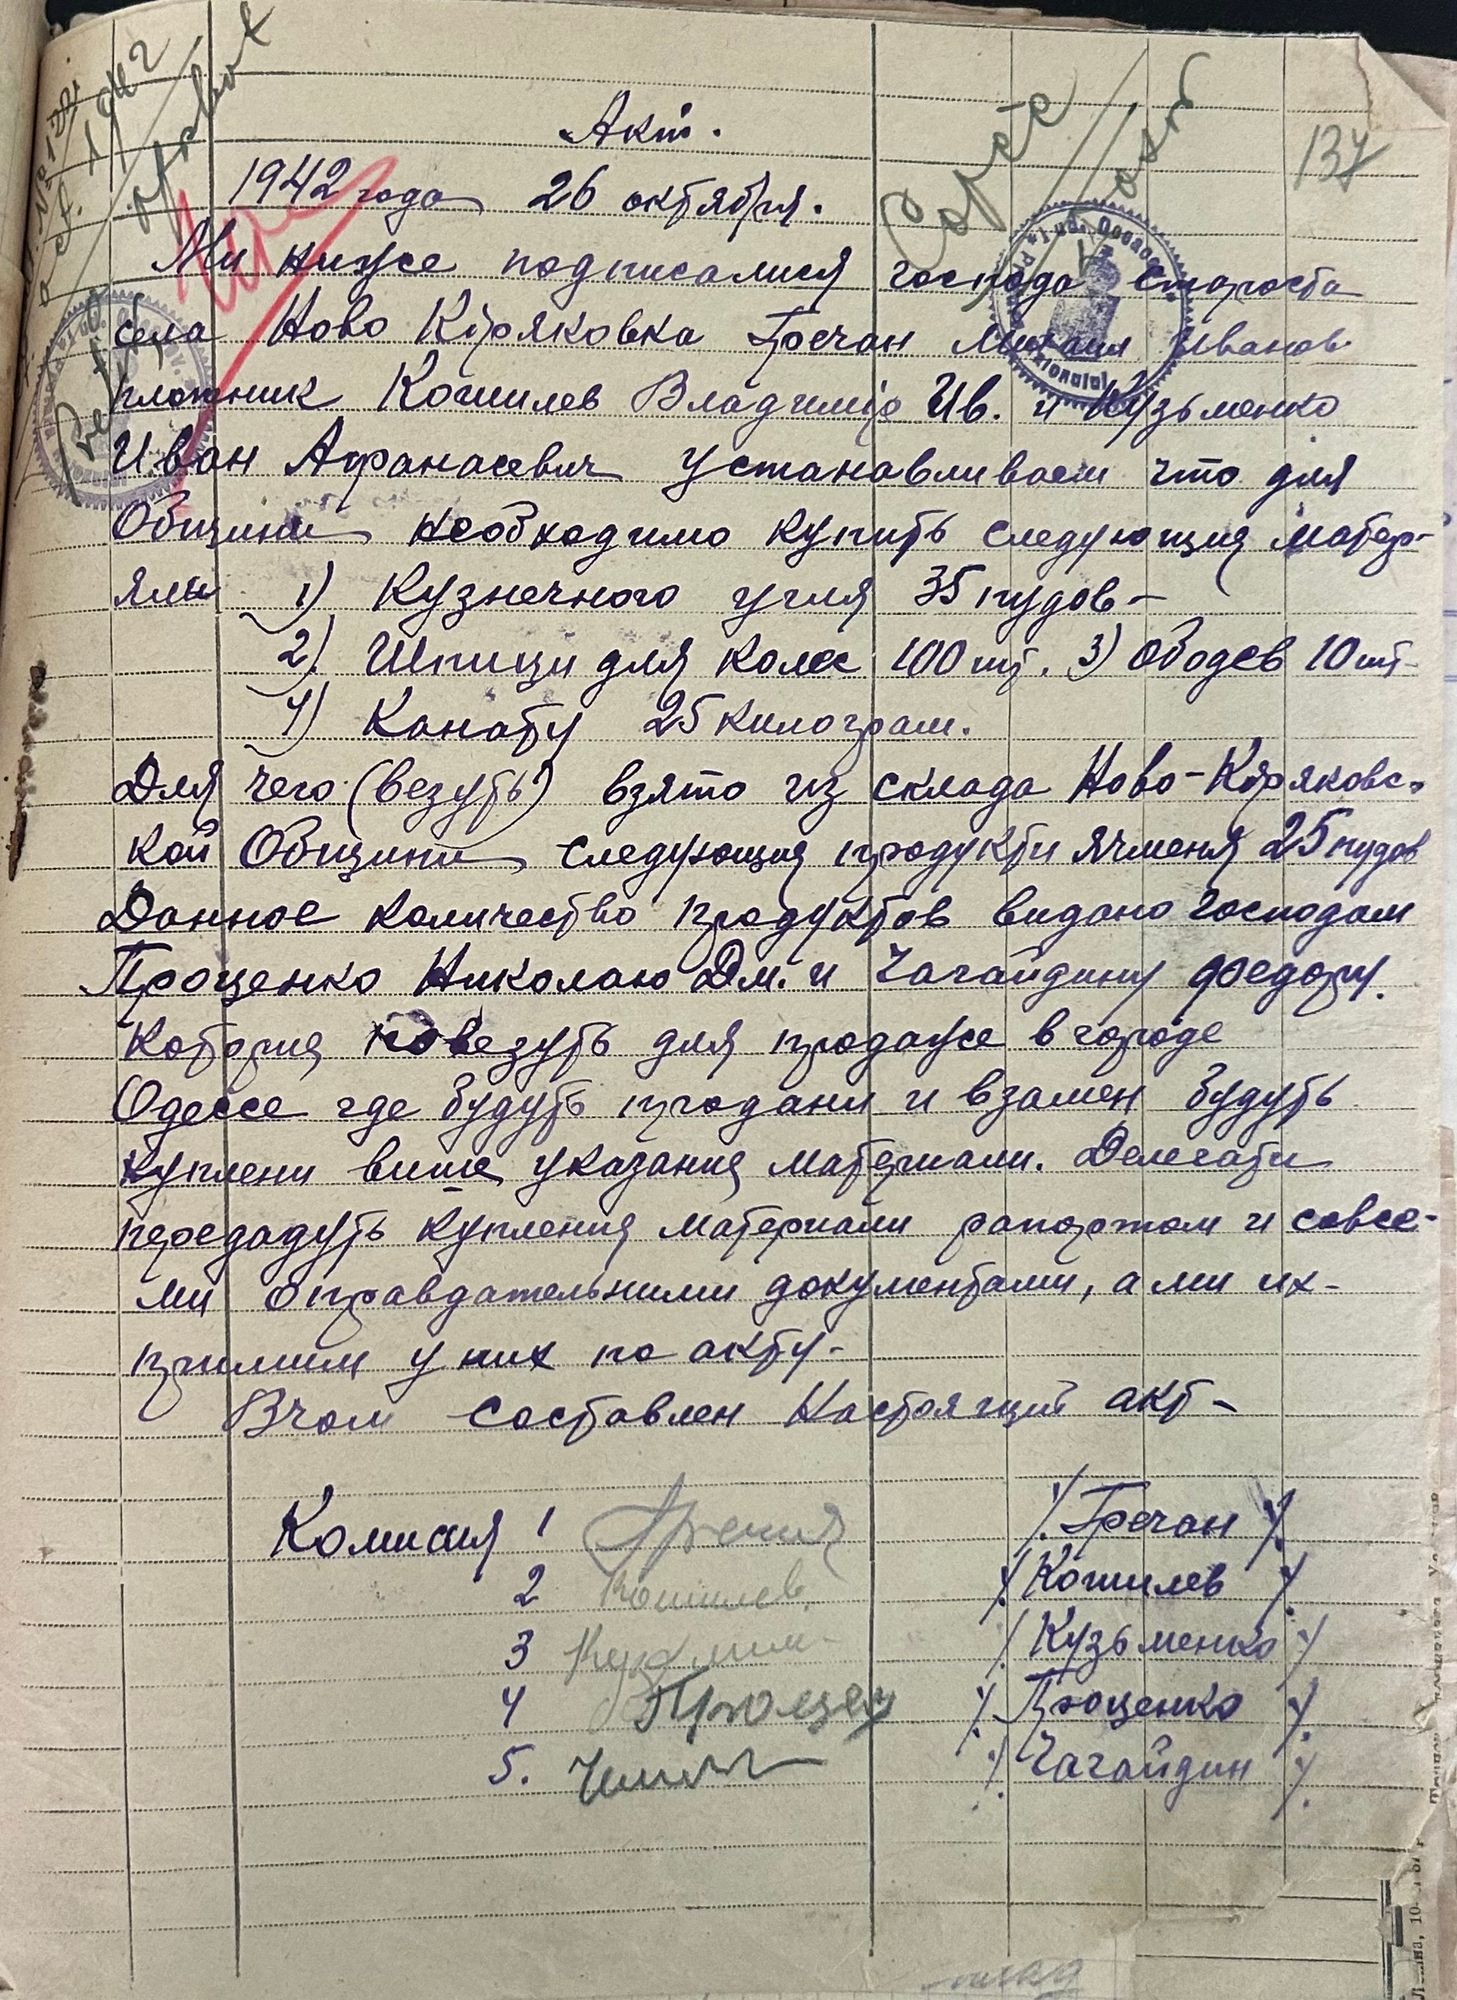 137
1942
Акт.
1942 года 26 октября.
Ми ниже подписалися господа староста
села Ново Кiряковка Гречан Михаил Иванов.
плотник Кошилев Владимiр Ив. и Кузьменко
Иван Афанасевич устанавливаем что для
Общини необходимо купить следующия матер-
ялы 1) Кузнечного угля 35 пудов-
2) Шпици для колес 100 шт. 3) Ободев 10 шт-
4) Канату 25 килограм.
Для чего (везуть) взято из склада Ново-Кiряковс-
кой Общини следующия продукти ячменя 25 пудов
Данное количество продуктов видано господам
Проценко Николаю Дм. и Чагайдину Федору.
Котория повезуть для продаже в городе
Одессе где будуть продани и взамен будуть
куплени више указания материали. Делегати
передадуть купления материали рапортом и совсе-
ми оправдательними документами, а ми их-
примим у них по акту-
Вчом составлен Настоящий акт-
Комисия 1 /. Гречан /.
2 Кошилев. /. Кошилев /.
3 /. Кузьменко /.
4 Проценк /. Проценко /.
5. /. Чагайдин /.